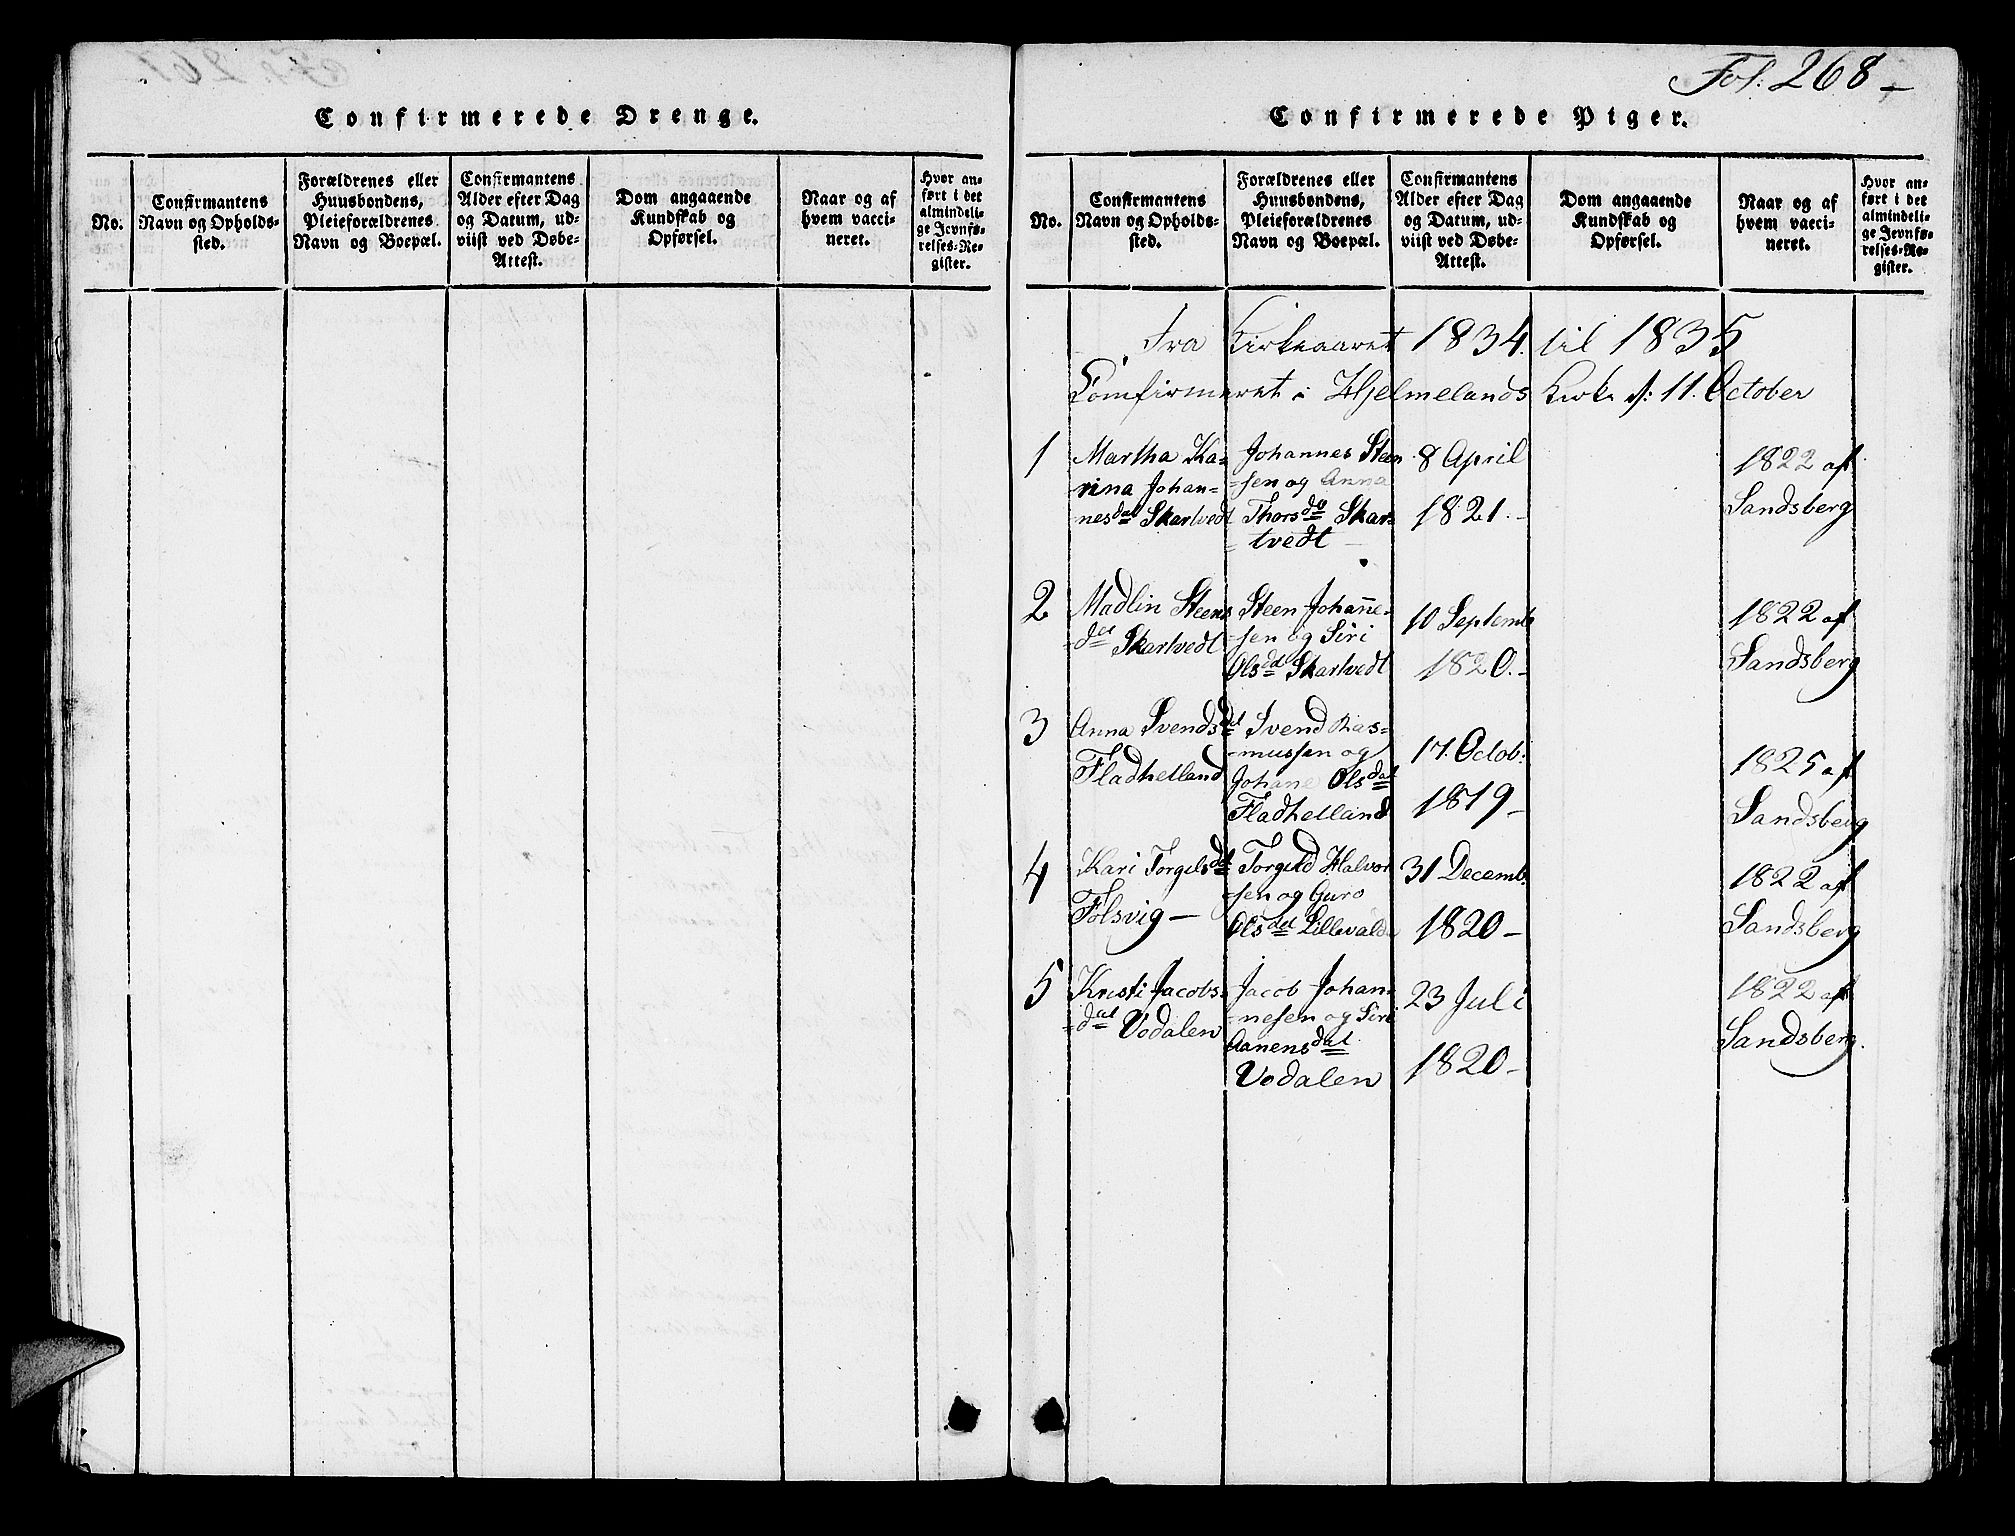 Confirmerede Drenge.
No.
Confirmantens
Navn og Opholds-
sted.
Forældrenes eller
Huusbondens,
Pleieforældrenes
Navn og Boepæl.
Confirmantens
Alder efter Dag
og Datum, ud-
viist ved Døbe-
Attest.
Dom angaaende
Kundskab og
Opførsel.
Naar og af
hvem vacci-
neret.
Hvor an-
ført i det
almindeli-
ge Jevnfø-
relses-Re-
gister.
Fol. 268 -
Confirmerede Piger.
No.
Confirmantens
Navn og Opholds-
sted.
Forældrenes eller
Huusbondens,
Pleieforældrenes
Navn og Boepæl.
Confirmantens
Alder efter Dag
og Datum, ud-
viist ved Døbe-
Attest.
Dom angaaende
Kundskab og
Opførsel.
Naar og af
hvem vacci-
neret.
Hvor an-
ført i det
almindeli-
ge Jevnfø-
relses-Re-
gister.
Fra Kirkeaaret 1834. til 1835
Comfirmeret i Hjelmelands Kirke d: 11. October
1
Martha Ka-
rina Johan=
nesdat Skartvedt
Johannes Steen
=sen og Anna
Thorsda Skar=
=tvedt -
8 April
1821.-
1822 af
Sandsberg
2
Madlin Steens
=dat Skartvedt
Steen Johanne=
=sen og Siri
Olsdat Skartvedt
10 Septemb
1820.-
1822 af
Sandsberg
3
Anna Svendsdat
Fladhelland
Svend Ras=
=mussen og
Johane Olsdat
Fladhelland
17. Octob:
1819 -
1825 af
Sandsberg
4
Kari Torgelsdat
Folsvig -
Torgeld Halvor
=sen og Guro
Olsdat Lillevald
31 Decemb:
1820 -
1822 af
Sandsberg
5
Kristi Jacobs=
=dat Vodalen
Jacob Johan=
=nesen og Siri
Aanensdat
Vodalen
23 Juli
1820 -
1822 af
Sandsberg.